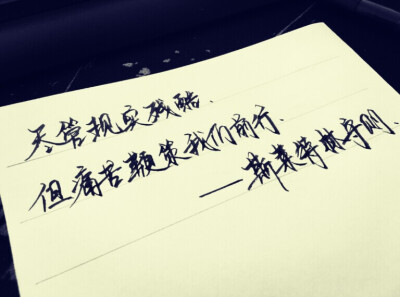 尽管现实残酷.
但痛苦鞭策我们前行.
——斯莱特林守则.